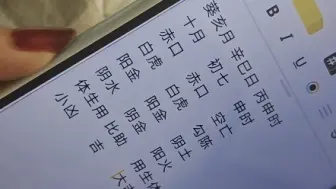 葵亥月 辛巳日 丙申时
十月 初七 申时
赤口 赤口 空亡
白虎 白虎 勾陈
阳金 阳金 阳土
阴水 阴金 阳火
体生用 比助 用生体
小凶 吉 大吉
B I U